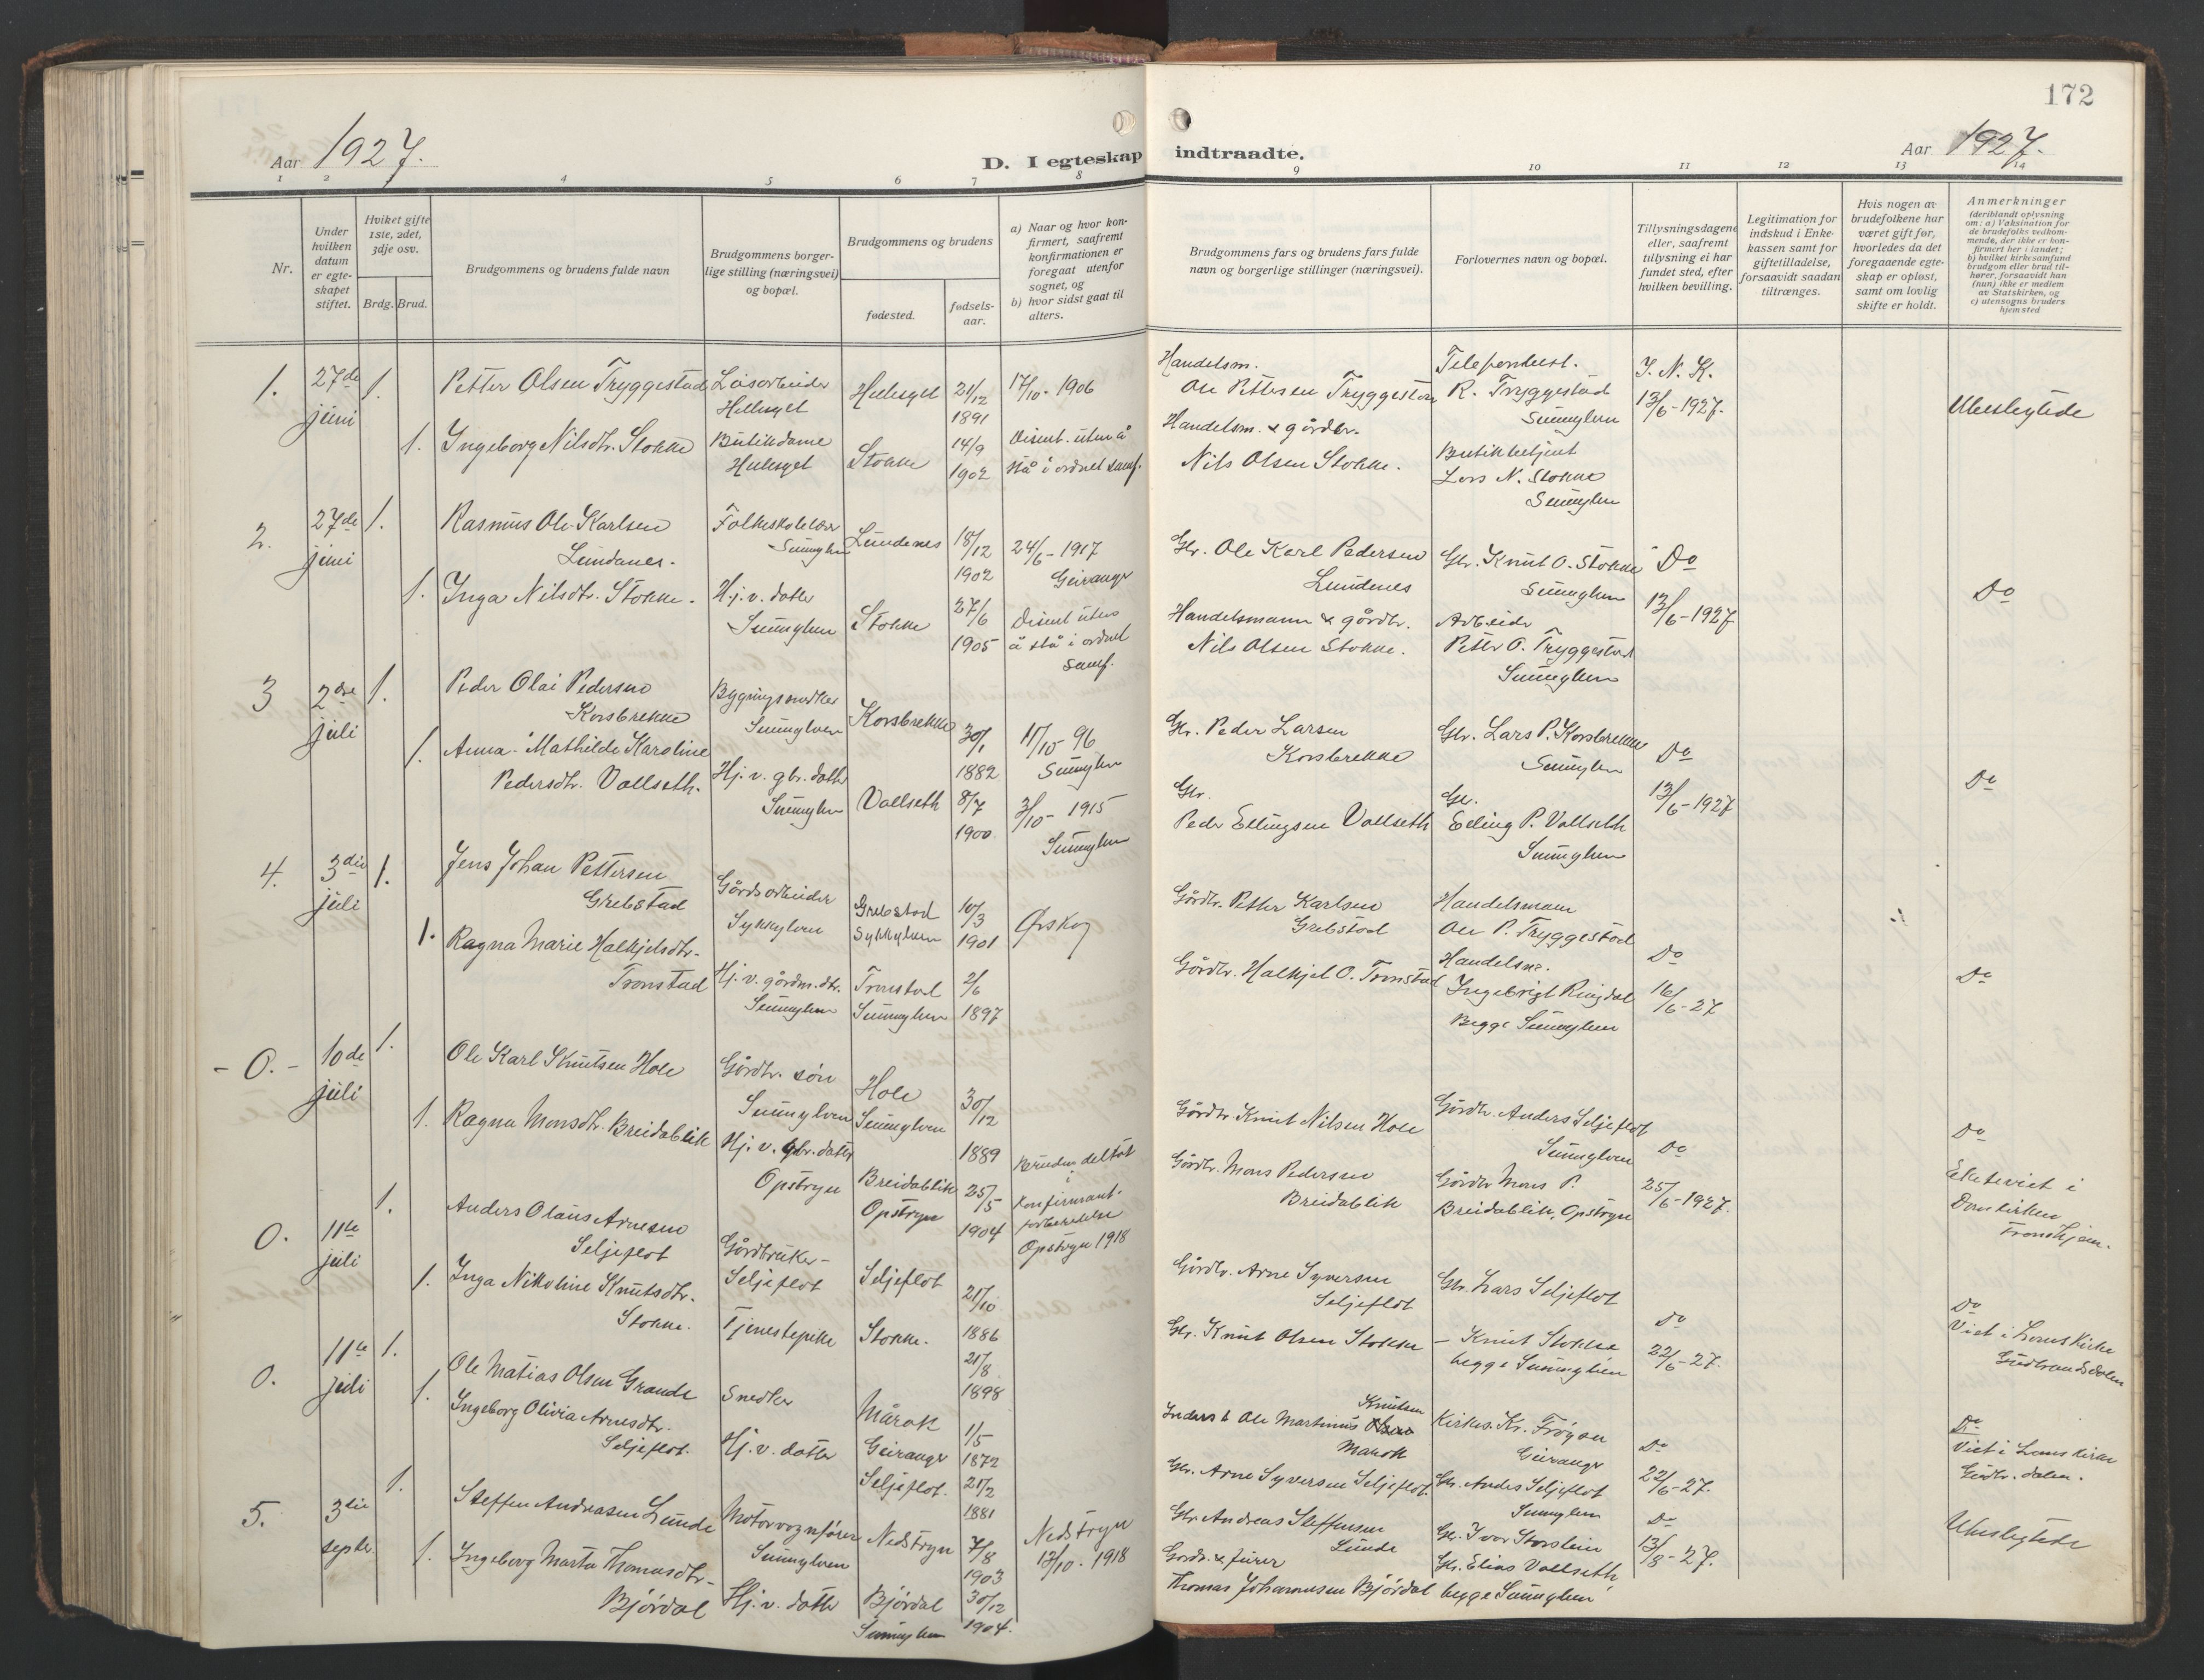 172
Aar 1927.
D. I egteskap indtraadte.
Aar 1927.
1 2 4 5 6 7 8 9 10 11 12 13 14
Nr.
Under hvilken datum er egteskapet stiftet.
Hviket gifte 1ste, 2det, 3dje osv.
Brdg. Brud.
Brudgommens og brudens fulde navn
Brudgommens borgerlige stilling (næringsvei) og bopæl.
Brudgommens og brudens
fødested.
fødsels-aar.
a) Naar og hvor konfirmert, saafremt konfirmationen er foregaat utenfor sognet, og
b) hvor sidst gaat til alters.
Brudgommens fars og brudens fars fulde navn og borgerlige stillinger (næringsvei).
Forlovernes navn og bopæl.
Tillysningsdagene eller, saafremt tillysning ei har fundet sted, efter hvilken bevilling.
Legitimation for indskud i Enkekassen samt for giftetilladelse, forsaavidt saadan tiltrænges.
Hvis nogen av brudefolkene har været gift før, hvorledes da det foregaaende egteskap er opløst, samt om lovlig skifte er holdt.
Anmerkninger
(deriblandt oplysning om: a) Vaksination for de brudefolks vedkommende, der ikke er konfirmert her i landet; b) hvilket kirkesamfund brudgom eller brud tilhører, forsaavidt han (hun) ikke er medlem av Statskirken, og c) utensogns bruders hjemsted
1. 27de juni 1.
Petter Olsen Tryggestad
Løsarbeider
Hellesyet
Hellesyet
21/12 1891
17/10 - 1906
Handelsm.
Ole Pettersen Tryggestad
Telefonbest.
R. Tryggestad
Sunnylven
J. N. K.
13/6-1927.
Ubeslegtede
1. Ingeborg Nilsdtr. Stokke
Butikdame
Hellesyet
Stokke
14/9 1902
Disent. uten å
stå i ordnet samf.
Handelsm. & gårdbr.
Nils Olsen Stokke.
Butikbetjent
Lars N. Stokke
Sunnylven
2. 27de juni 1.
Rasmus Ole Karlsen
Lundanes.
Folkeskolelær
Sunnylven
Lundenes
18/12 1902
24/6 - 1917
Geiranger
Gbr. Ole Karl Pedersen
Lundenes
Gbr. Knut O. Stokke
Sunnylven
Do
13/6-1927
Do
1. Inga Nilsdtr. Stokke.
Hj. v. datter
Sunnylven
Stokke
27/6 1905
Disent uten
å stå i ordnet
samf.
Handelsmann & gårdbr.
Nils Olsen Stokke.
Arbeider
Petter O. Tryggestad
Sunnylven
3 2dre juli 1.
Peder Olai Pedersen
Korsbrekke
Bygningssnedker
Sunnylven
Korsbrekke
30/1 1882
11/10 - 96
Sunnylven
Gbr. Peder Larsen
Korsbrekke
Gbr. Lars P. Korsbrekke
Sunnylven
Do
13/6-1927
Do
1. Anna Mathilde Karoline
Pedersdtr. Vollseth.
Hj. v. gbr. datter
Sunnylven
Vollseth
8/7 1900
3/10 - 1915
Sunnylven
Gbr.
Peder Ellingsen Vollseth
Gbr.
Elling P. Vollseth
Sunnylven
4. 3die juli 1.
Jens Johan Pettersen
Grebstad
Gårdsarbeider
Sykkylven
Grebstad
Sykkylven
10/3 1901
Ørskog
Gårdbr. Petter Karlsen
Grebstad
Handelsmann
Ole P. Tryggestad
Do
16/6-27
Do
1. Ragna Marie Halkjelsdtr.
Tronstad
Hj. v. gårdm. dtr.
Sunnylven
Tronstad
Sunnylven
2/6 1897
Gårdbr. Halkjel O. Tronstad
Handelsm.
Ingebrigt Ringdal
Begge Sunnylven
- 0. - 10de juli 1.
Ole Karl Knutsen Hole
Gårdbr. søn
Sunnylven
Hole
Sunnylven
30/12 1889
Gårdbr Knut Nilsen Hole
Gårdbr. Anders Seljeflot
Sunnylven
Do
25/6-1927.
Do
Ekteviet i
Domkirken
Trondhjem.
1. Ragna Monsdtr. Breidablik
Hj. v. gbr. datter
Opstryn
Breidablik
Opstryn
25/5 1904
Bruden deltat
i
konfirmant-
forberedelse
Opstryn 1918
Gårdbr. Mons Pedersen
Breidablik
Gårdbr Mons P.
Breidablik, Opstryn
0. 11te juli 1.
Anders Olaus Arnesen
Seljeflot
Gårdbruker
Seljeflot
Seljeflot
21/10 1886
Gårdbr. Arne Syversen
Seljeflot
Gbr. Lars Seljeflot
Do
22/6-27.
Do
Viet i Loms Kirke
Gudbrandsdalen
1. Inga Nikoline Knutsdtr.
Stokke.
Tjenestepike
Stokke.
21/8 1898
Gbr. Knut Olsen Stokke
- Knut Stokke
begge Sunnylven
0. 11te juli 1.
Ole Matias Olsen Grande
Snedker
Mårok
Geiranger
1/5 1872
Inderst Ole Martinus Olsen Knutsen
Marok
Kirkes. Kr. Frøysa
Geiranger
Do
22/6-27.
Do
Viet i Loms Kirke
Gudbr. dalen.
1. Ingeborg Olivia Arnesdtr.
Seljeflot.
Hj. v. datter
Seljeflot.
21/2 1881
Gbr. Arne Syversen Seljeflot.
Gbr. Anders Seljeflot
Sunnylven
5. 3die septbr. 1.
Steffen Andreasen Lunde
Motorvognfører
Sunnylven
Nedstryn
7/8 1903
Nedstryn
13/10 - 1918
Gbr Andreas Steffensen
Lunde
Gbr. Ivar Storslein
Do
13/8-27.
Ubeslegtede
1. Ingeborg Marta Thomasdtr.
Bjørdal
Hj. v. datter
Bjørdal
Sunnylven
30/12 1904.
Gårdbr. & furer
Thomas Johannesen Bjørdal
Gbr. Elias Vollseth
begge Sunnylven